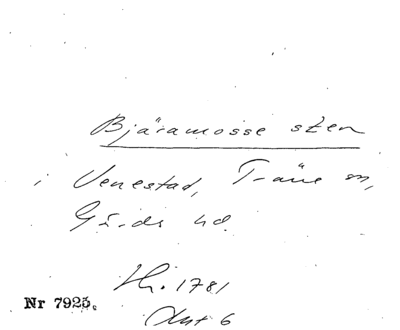 Bjäramosse sten
i Venestad, Träne sn,
Gärds hd.
Hr. 1781
Nr 7925.
6